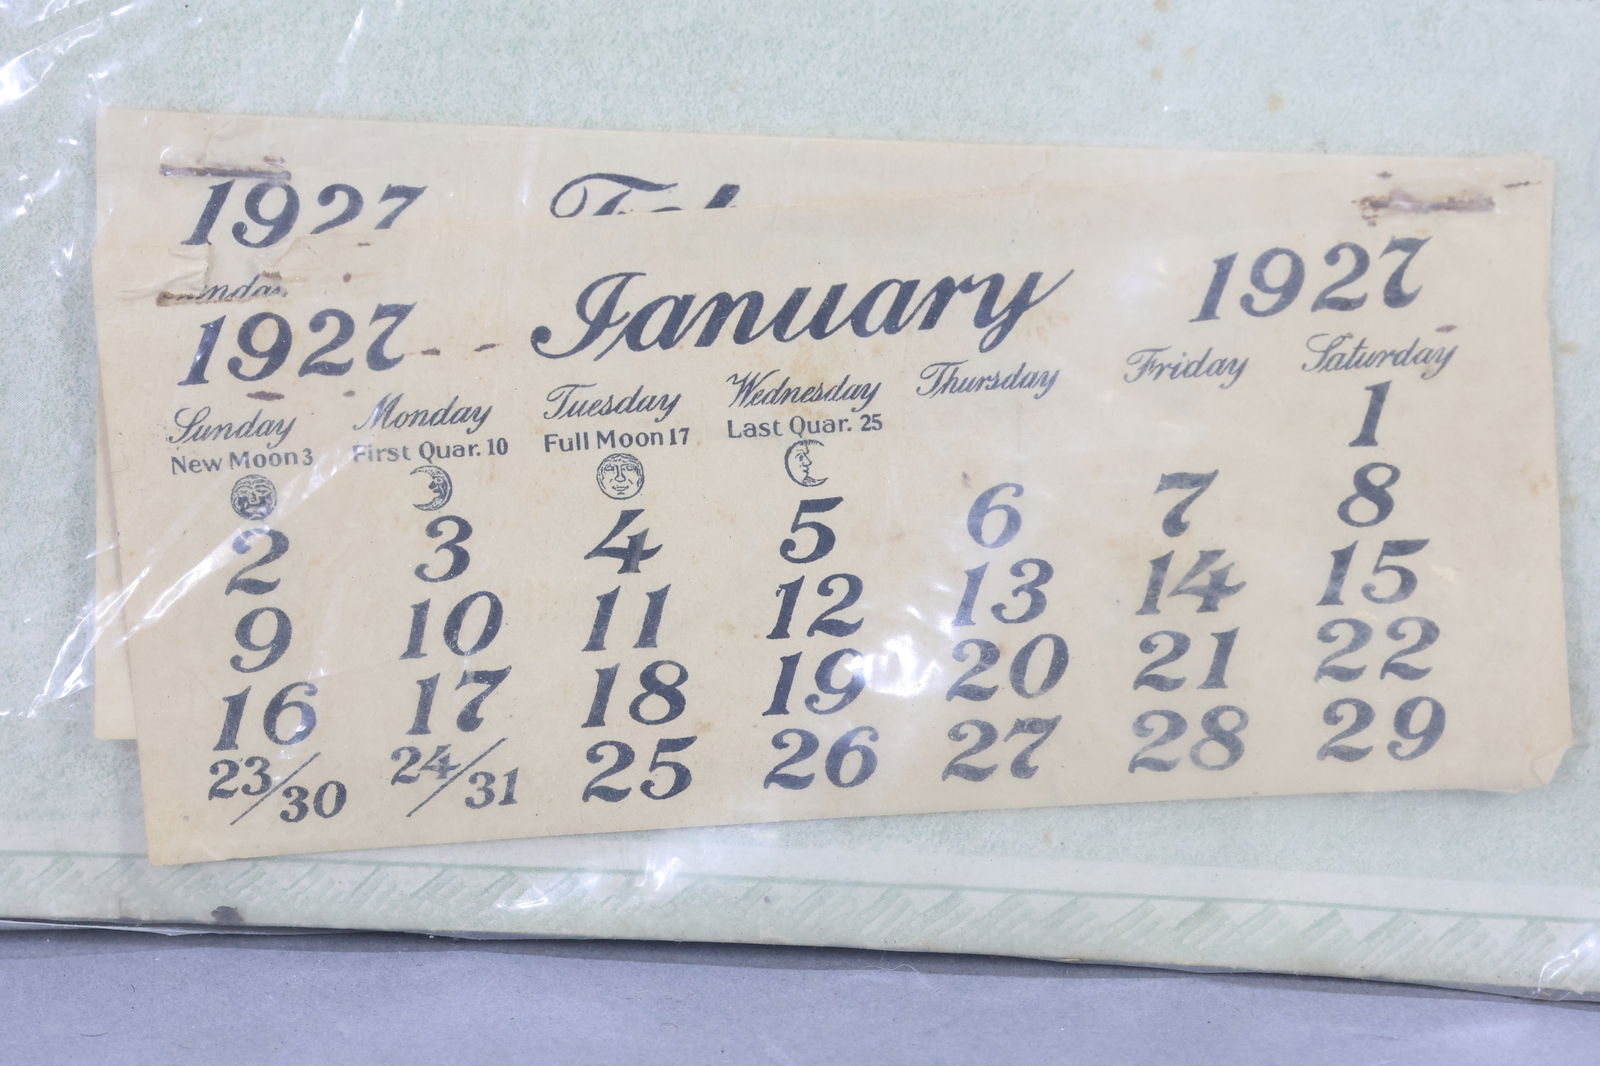 1927
1927 January 1927
Sunday Monday Tuesday Wednesday Thursday Friday Saturday
New Moon 3 First Quar. 10 Full Moon 17 Last Quar. 25
1
2 3 4 5 6 7 8
9 10 11 12 13 14 15
16 17 18 19 20 21 22
23/30 24/31 25 26 27 28 29